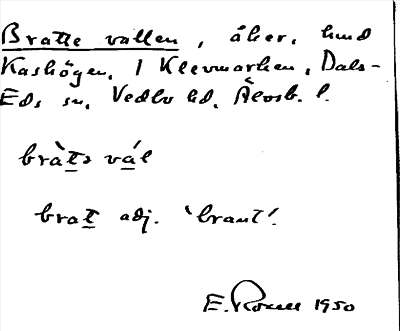 Bratte vallen, åker, hmd
Kashögen, 1 Klevmarken, Dals-
Eds sn, Vedbo hd, Älvsb. l.
bràtɜ vál
brat adj. 'brant'.
E. 1950